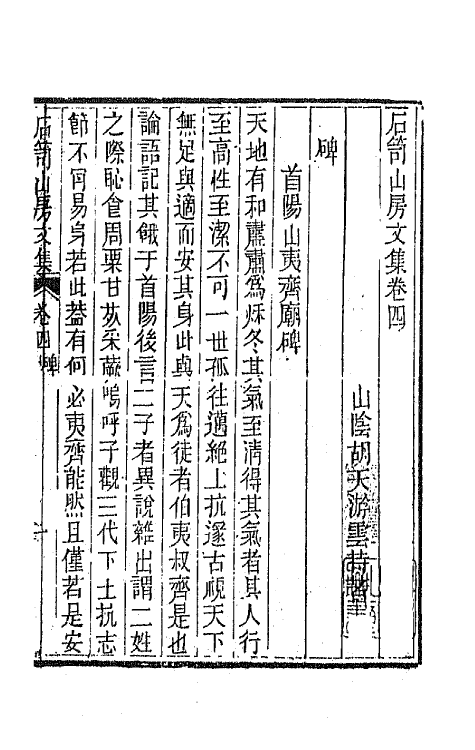 石笥山房文集卷四
山陰胡天游雲持
碑
首陽山夷齊廟碑
天地有和肅肅爲秌冬其氣至清得其氣者其人行
至高性至潔不可一世孤往邁絕上抗邃古視天下
無足與適而安其身此與天爲徒者伯夷叔齊是也
論語記其餓于首陽後言二子者異說雜出謂二姓
之際恥食周粟甘苁采薇嗚呼予觀三代下士抗志
節不肎易身若此葢有何必夷齊能然且僅若是安
石笥山房文集 卷四 碑 一